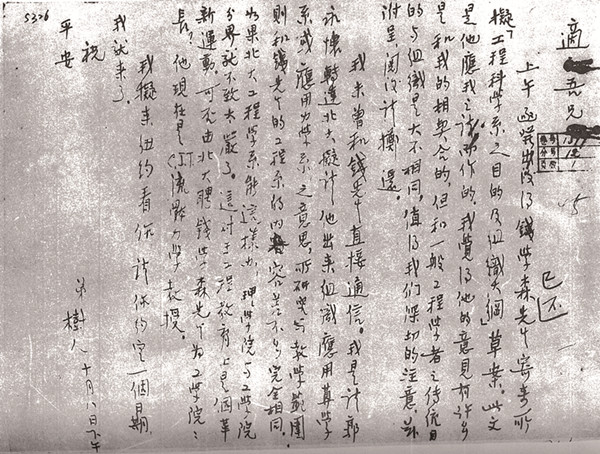 適吾兄
上午函發出後得錢學森先生寄來所
擬「工程科學系之目的及組織大綱」草案。此文
是他應我之請而作的。我覺得他的意見有許多
是和我的相契合的,但和一般工程學者之傳統目
的与組織是大不相同,值得我們深切的注意。茲
附呈,閱後請擲還。
我未曾和錢先生直接通信。我是請郭
永懷轉達北大擬請他出來組織應用算學
系或應用力學系之意思。所研究与教學範圍
則和錢先生的工程系的內容差不多完全相同。
如果北大工程學系能這樣办,理學院与工學院
分界就不致太嚴了。這對于工程教育上是個革
新運動。可否由北大聘錢學森先生为工學院院
長?他現在是CIT流體力學教授。
我擬來紐約看你,請你約定一個日期,
我就來了。
祝
平安
弟 樹人 十月八日下午
已不
5326